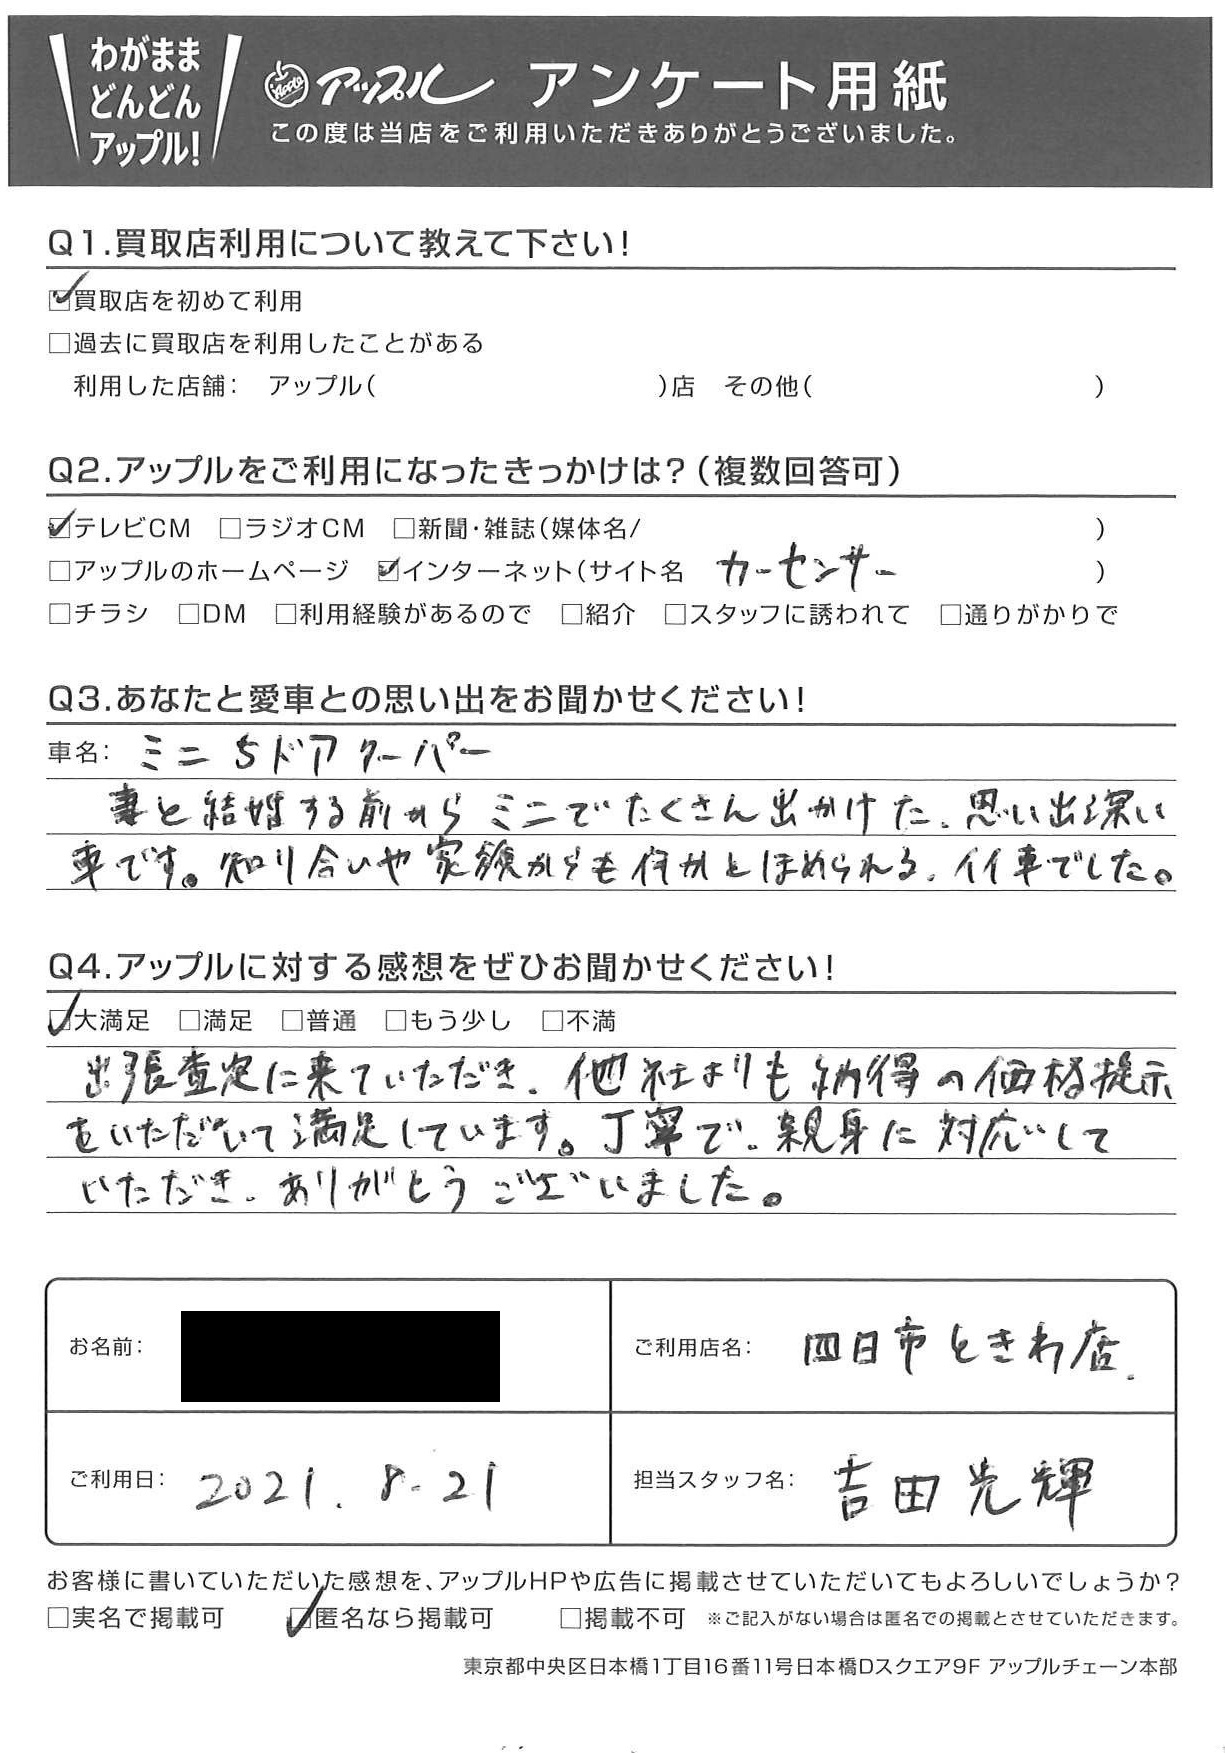 わがまま
どんどん
アップル!
Apple アップル アンケート用紙
この度は当店をご利用いただきありがとうございました。
Q1.買取店利用について教えて下さい!
☑買取店を初めて利用
□過去に買取店を利用したことがある
利用した店舗: アップル( )店 その他( )
Q2.アップルをご利用になったきっかけは?(複数回答可)
☑テレビCM □ラジオCM □新聞・雑誌(媒体名/ )
□アップルのホームページ ☑インターネット(サイト名 カーセンサー )
□チラシ □DM □利用経験があるので □紹介 □スタッフに誘われて □通りがかりで
Q3.あなたと愛車との思い出をお聞かせください!
車名: ミニ 5ドア クーパー
妻と結婚する前からミニでたくさん出かけた、思い出深い
車です。知り合いや家族からも何かとほめられる、イイ車でした。
Q4.アップルに対する感想をぜひお聞かせください!
☑大満足 □満足 □普通 □もう少し □不満
出張査定に来ていただき、他社よりも納得の価格提示
をいただいて満足しています。丁寧で、親身に対応して
いただき、ありがとうございました。
お名前: ご利用店名: 四日市ときわ店.
ご利用日: 2021. 8. 21 担当スタッフ名: 吉田光輝
お客様に書いていただいた感想を、アップルHPや広告に掲載させていただいてもよろしいでしょうか?
□実名で掲載可 ☑匿名なら掲載可 □掲載不可 ※ご記入がない場合は匿名での掲載とさせていただきます。
東京都中央区日本橋1丁目16番11号日本橋Dスクエア9F アップルチェーン本部